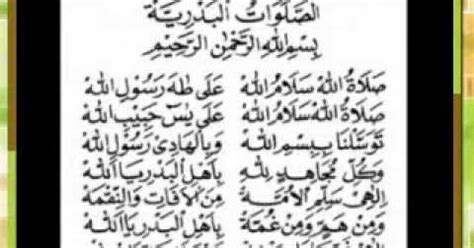 الصَّلَوَاتُ الْبَدْرِيَّةُ
بِسْمِ اللهِ الرَّحْمٰنِ الرَّحِيْمِ
صَلَاةُ اللهْ سَلَامُ اللهْ عَلَى طٰهَ رَسُوْلِ اللهْ
صَلَاةُ اللهْ سَلَامُ اللهْ عَلَى يٰسۤ حَبِيْبِ اللهْ
تَوَسَّلْنَا بِبِسْمِ اللهْ وَبِالْهَادِى رَسُوْلِ اللهْ
وَكُلِّ مُجَاهِدٍ لِلّٰهِ بِاَهْلِ الْبَدْرِ يَا اَللهْ
اِلٰهِىْ سَلِّمِ الْاُمَّةْ مِنَ الْاٰفَاتِ وَالنِّقْمَةْ
وَمِنْ هَمٍّ وَمِنْ غُمَّةْ بِاَهْلِ الْبَدْرِ يَا اَللهْ